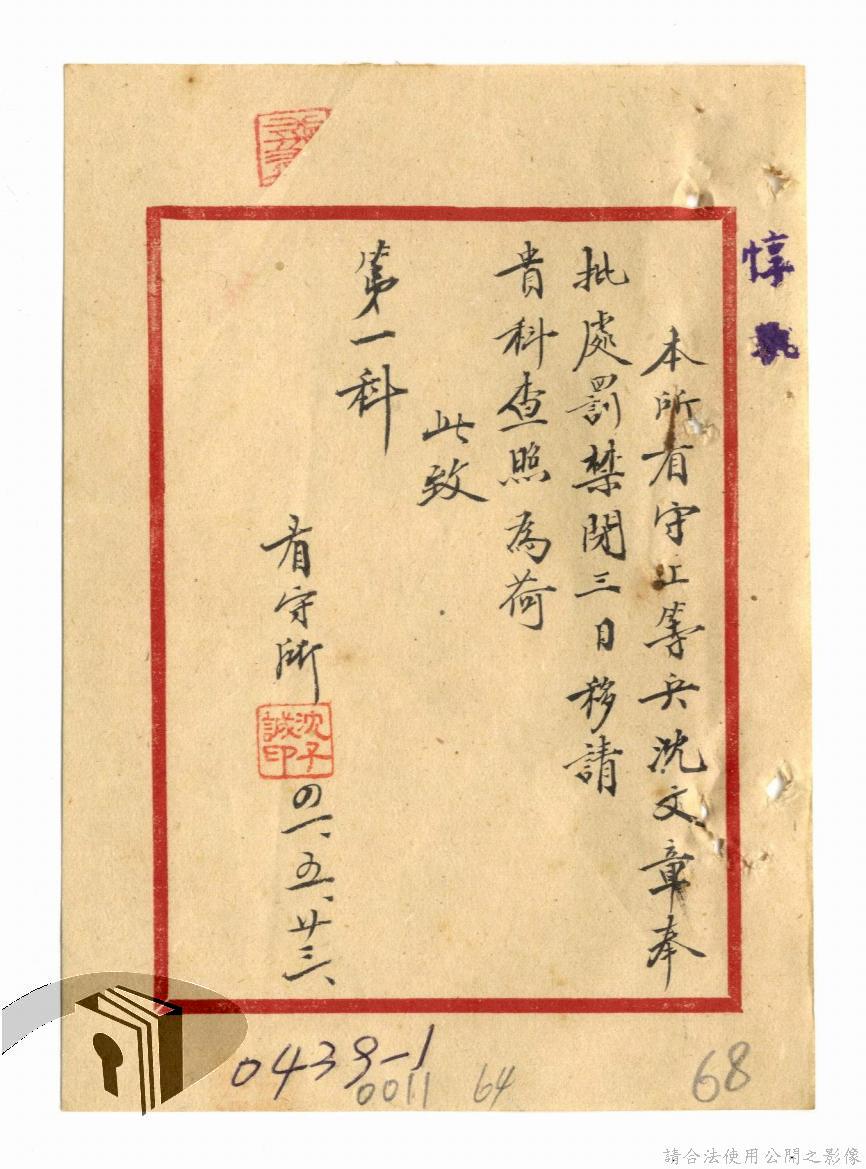 本所看守上等兵沈文章奉
批處罰禁閉三日移請
貴科查照為荷
此致
第一科
看守所
沈子誠印
四一、五、廿三、
0439-1
0011
64
68
請合法使用公開之影像